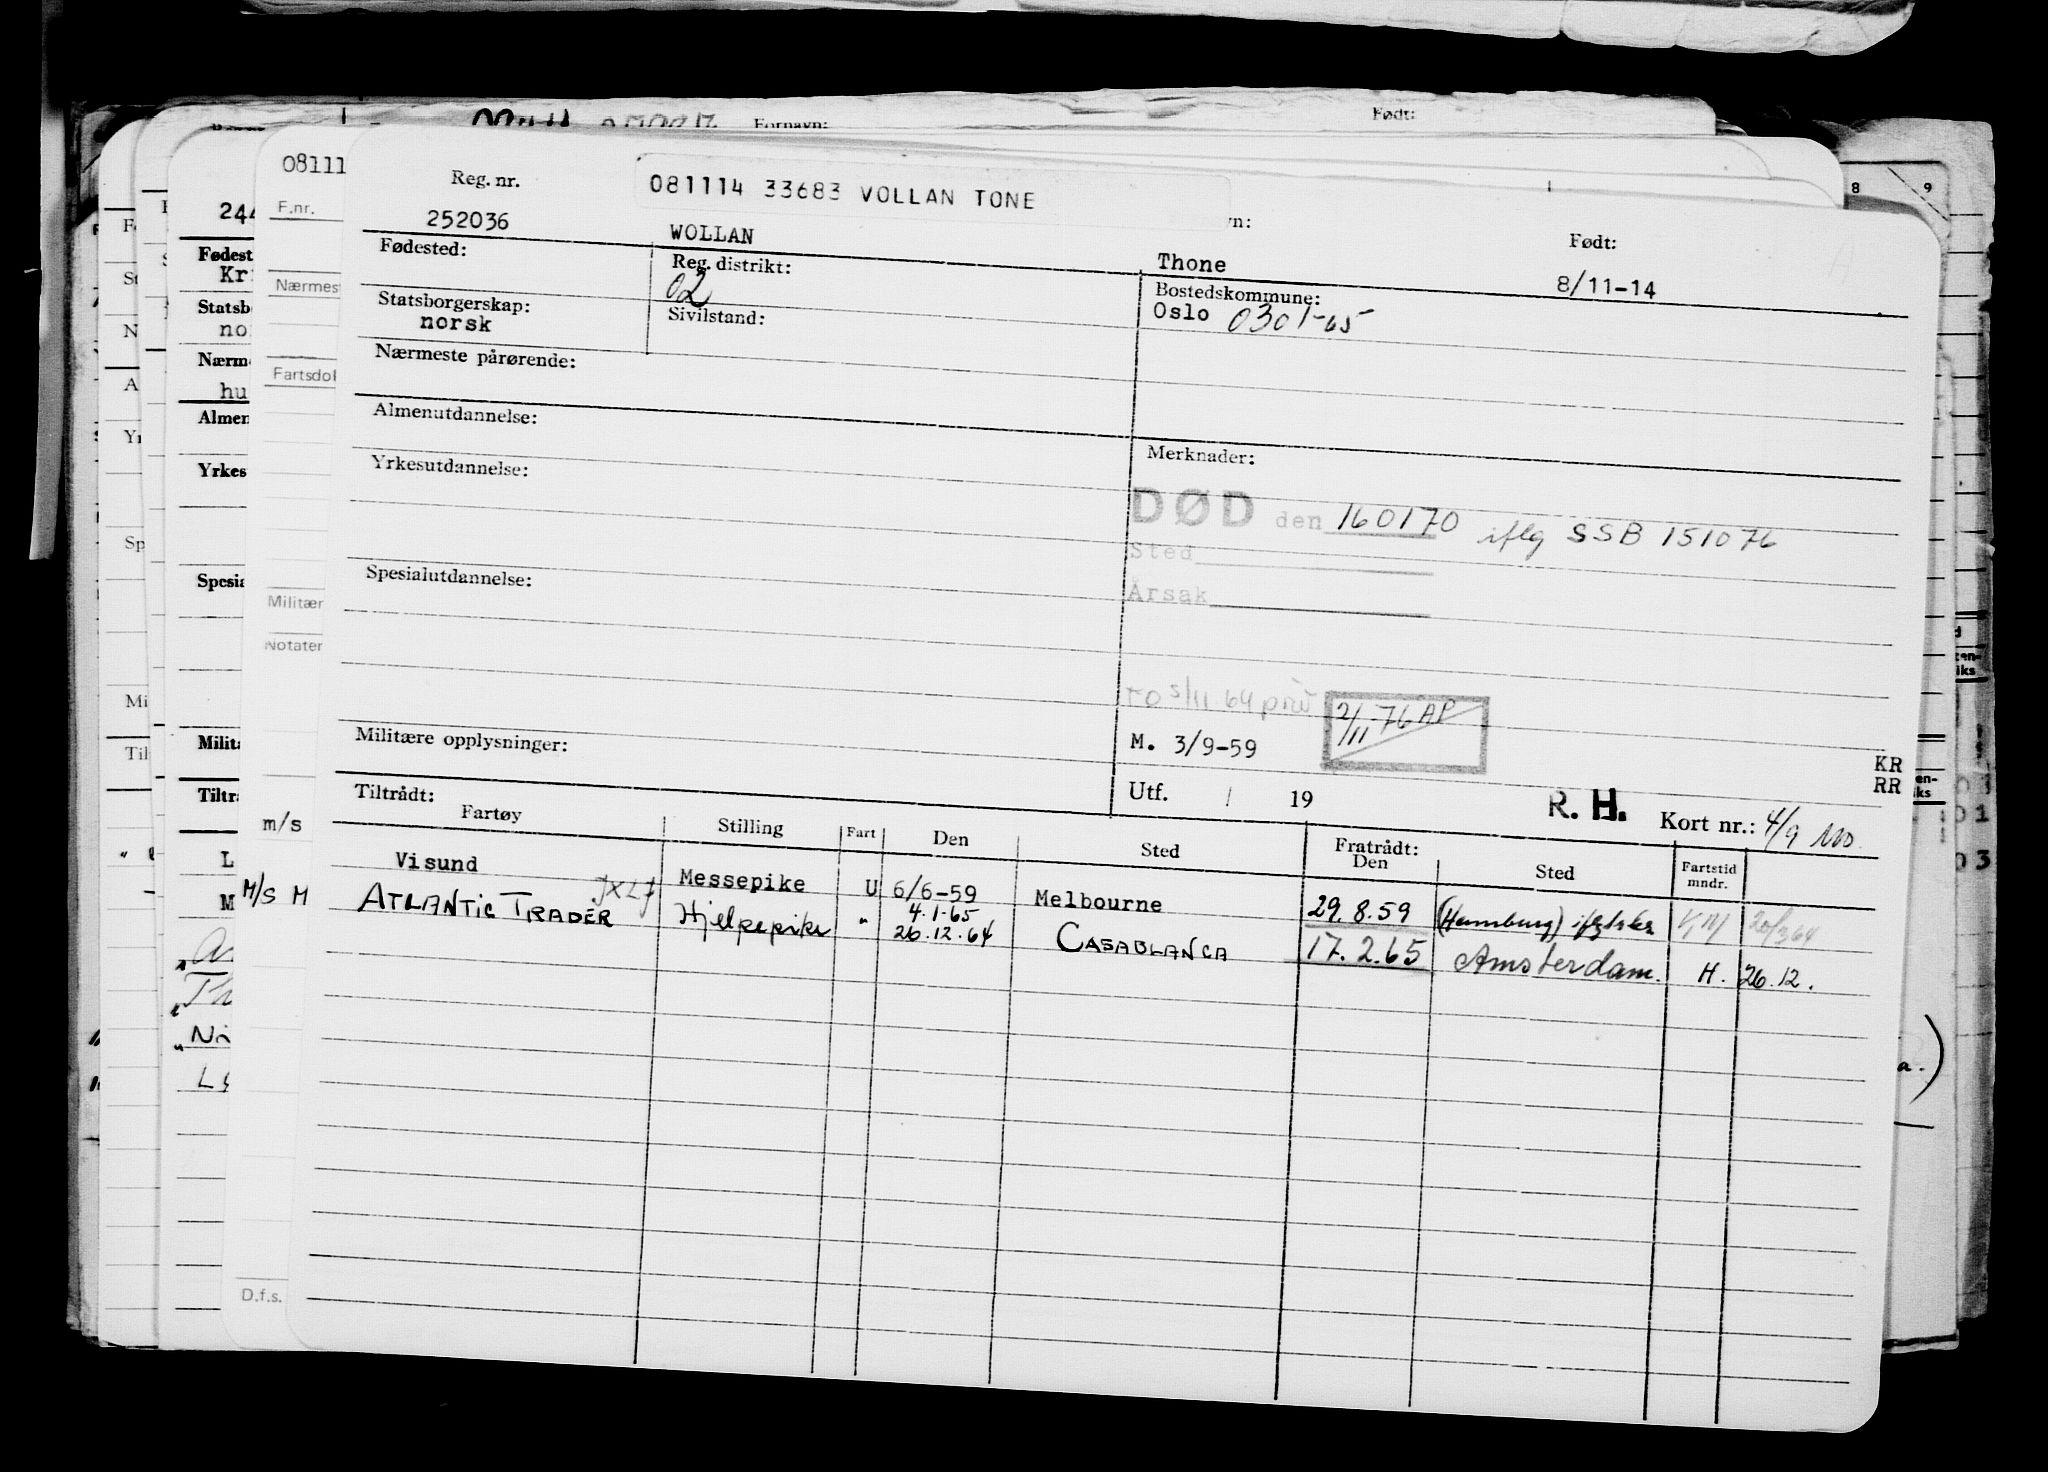 Født:
Fornavn:
8 9
08111
Reg. nr.
081114 33683 VOLLAN TONE
252036
WOLLAN
Thone
Født:
8/11-14
Fødested:
Reg. distrikt:
02
Bostedskommune:
Oslo 0301-65
Statsborgerskap:
norsk
Sivilstand:
Nærmeste pårørende:
Almenutdannelse:
Merknader:
Yrkesutdannelse:
DØD den 160170 iflg SSB 151076
Sted
Årsak
Spesialutdannelse:
FO 5/11 64 priv
2/11-76 AP
Militære opplysninger:
M. 3/9-59
KR
RR
Utf. / 19
R. H. Kort nr.: 4/9
Tiltrådt:
Fartøy Stilling Fart Den Sted
Fratrådt:
Den Sted
Fartstid
mndr.
Visund Messepike U 6/6-59 Melbourne 29.8.59 (Hamburg)
JXLJ
4.1.65
ATLANTIC TRADER Hjelpepike " 26.12.64 CASABLANCA 17.2.65 Amsterdam. H. 26.12.
F.nr.
Nærmest
Fartsdok
Militær
Notater
m/s
M/S M
D.f.s.
244
Fødest
Kri
Statsb
no
Nærme
hu
Almen
Yrkes
Spesia
Milita
Tiltr